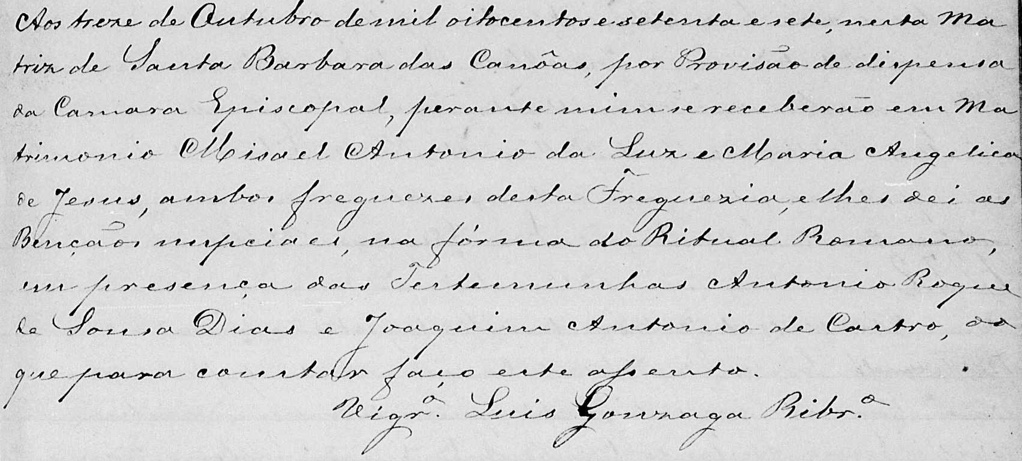 Aos treze de Outubro de mil oitocentos e setenta e sete, nesta Ma
triz de Santa Barbara das Canôas, por Provisão de dispensa
da Camara Episcopal, perante mim se receberão em Ma
trimonio Misael Antonio da Luz e Maria Angelica
de Jesus, ambos freguezes desta Freguezia, e lhes dei as
Bençãos nupciaes, na fórma do Ritual Romano,
em presença das Testemunhas Antonio Roque
de Sousa Dias e Joaquim Antonio de Castro, do
que para constar faço este assento.
Vigrº. Luis Gonzaga Ribrº